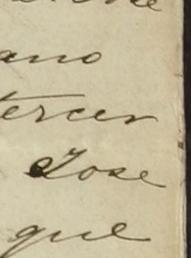 ano
tercer
Jose
que